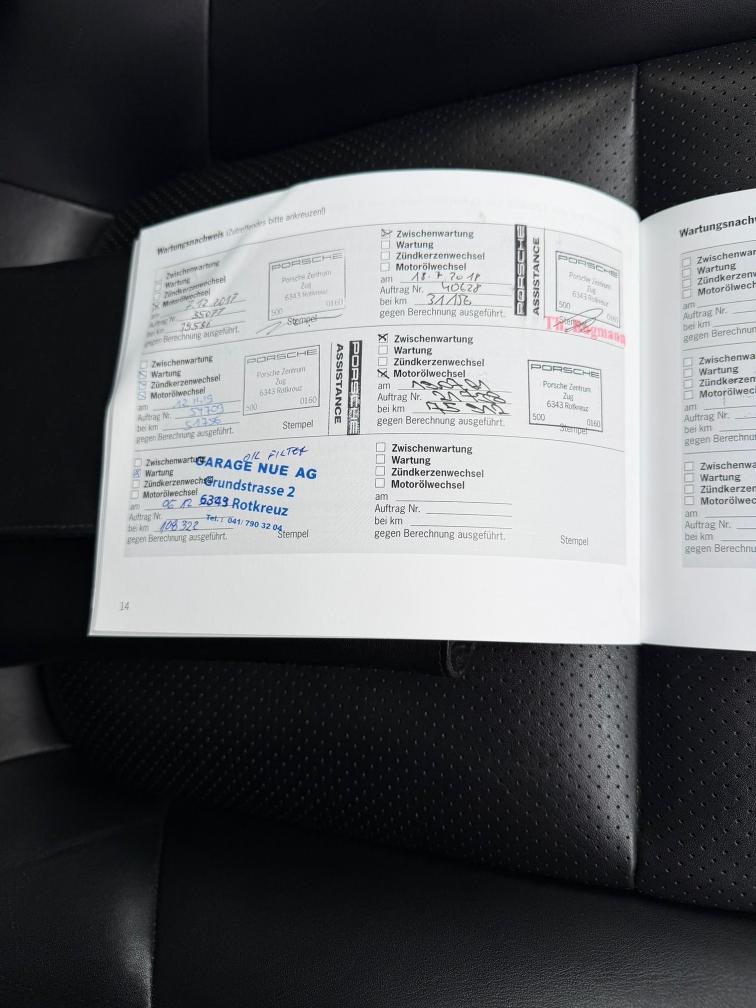 Wartungsnachweis (Zutreffendes bitte ankreuzen!)
Zwischenwartung
Wartung
Zündkerzenwechsel
Motorölwechsel
am 7.12.2017
Auftrag Nr. 35077
bei km
gegen Berechnung ausgeführt.
PORSCHE
Porsche Zentrum
Zug
6343 Rotkreuz
500 0160
Stempel
Zwischenwartung
Wartung
Zündkerzenwechsel
Motorölwechsel
am 18.7.2018
Auftrag Nr. 40628
bei km 31156
gegen Berechnung ausgeführt.
PORSCHE
ASSISTANCE
PORSCHE
Porsche Zentrum
Zug
6343 Rotkreuz
500 0160
Stempel
Zwischenwartung
Wartung
Zündkerzenwechsel
Motorölwechsel
am 12.11.19
Auftrag Nr. 54709
bei km 51756
gegen Berechnung ausgeführt.
PORSCHE
Porsche Zentrum
Zug
6343 Rotkreuz
500 0160
Stempel
PORSCHE
ASSISTANCE
Zwischenwartung
Wartung
Zündkerzenwechsel
Motorölwechsel
am
Auftrag Nr.
bei km
gegen Berechnung ausgeführt.
PORSCHE
Porsche Zentrum
Zug
6343 Rotkreuz
500 0160
Stempel
Zwischenwartung
Wartung
Zündkerzenwechsel
Motorölwechsel
am 06 12
Auftrag Nr.
bei km 108 322
gegen Berechnung ausgeführt.
OIL FILTER
GARAGE NUE AG
Grundstrasse 2
6343 Rotkreuz
Tel.: 041/ 790 32 04
Stempel
Zwischenwartung
Wartung
Zündkerzenwechsel
Motorölwechsel
am
Auftrag Nr.
bei km
gegen Berechnung ausgeführt.
Stempel
14
Zwischenwartung
Wartung
Zündkerzenwechsel
am
Auftrag Nr.
bei km
Zwischenwartung
Wartung
am
Auftrag Nr.
bei km
Wartung
am
Auftrag Nr.
bei km